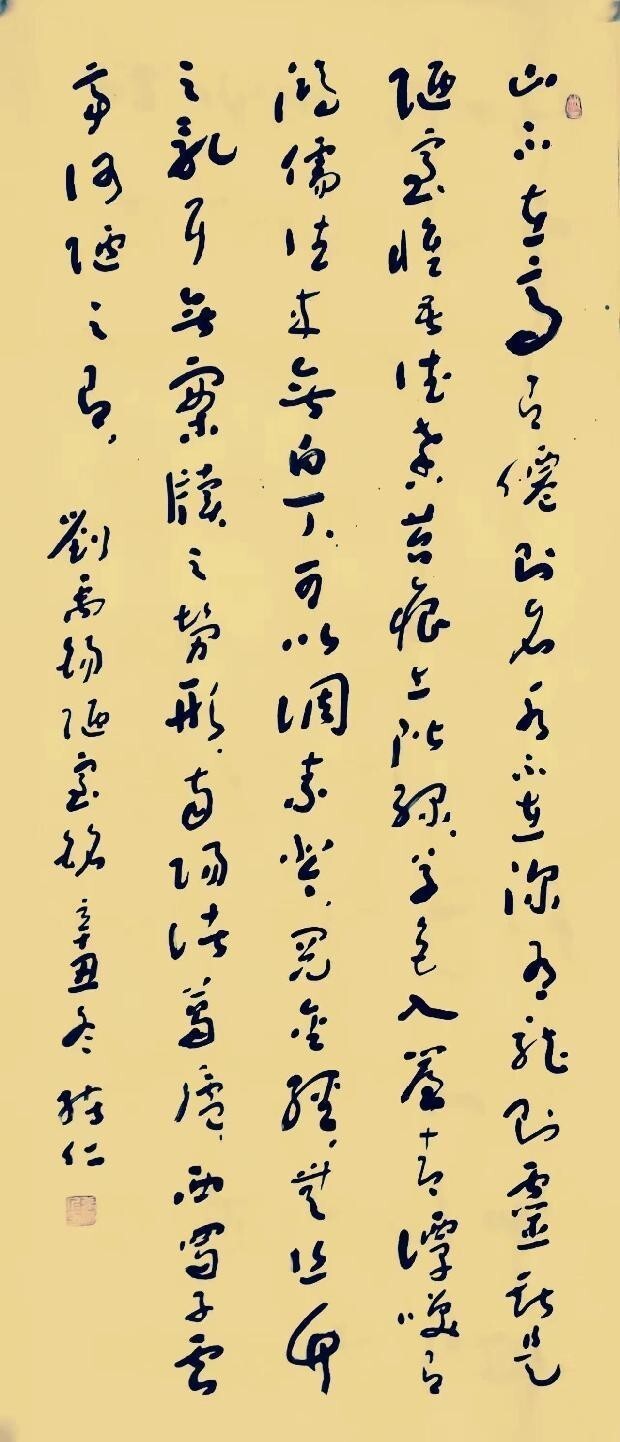 山不在高有僊則名水不在深有龍則靈斯是
陋室惟吾德馨苔痕上階綠草色入簾青譚咲有
鴻儒往來無白丁可以調素琴閱金經無絲竹
之亂耳無案牘之勞形南陽諸葛廬西蜀子雲
亭何陋之有 劉禹錫陋室銘 辛丑冬 仁